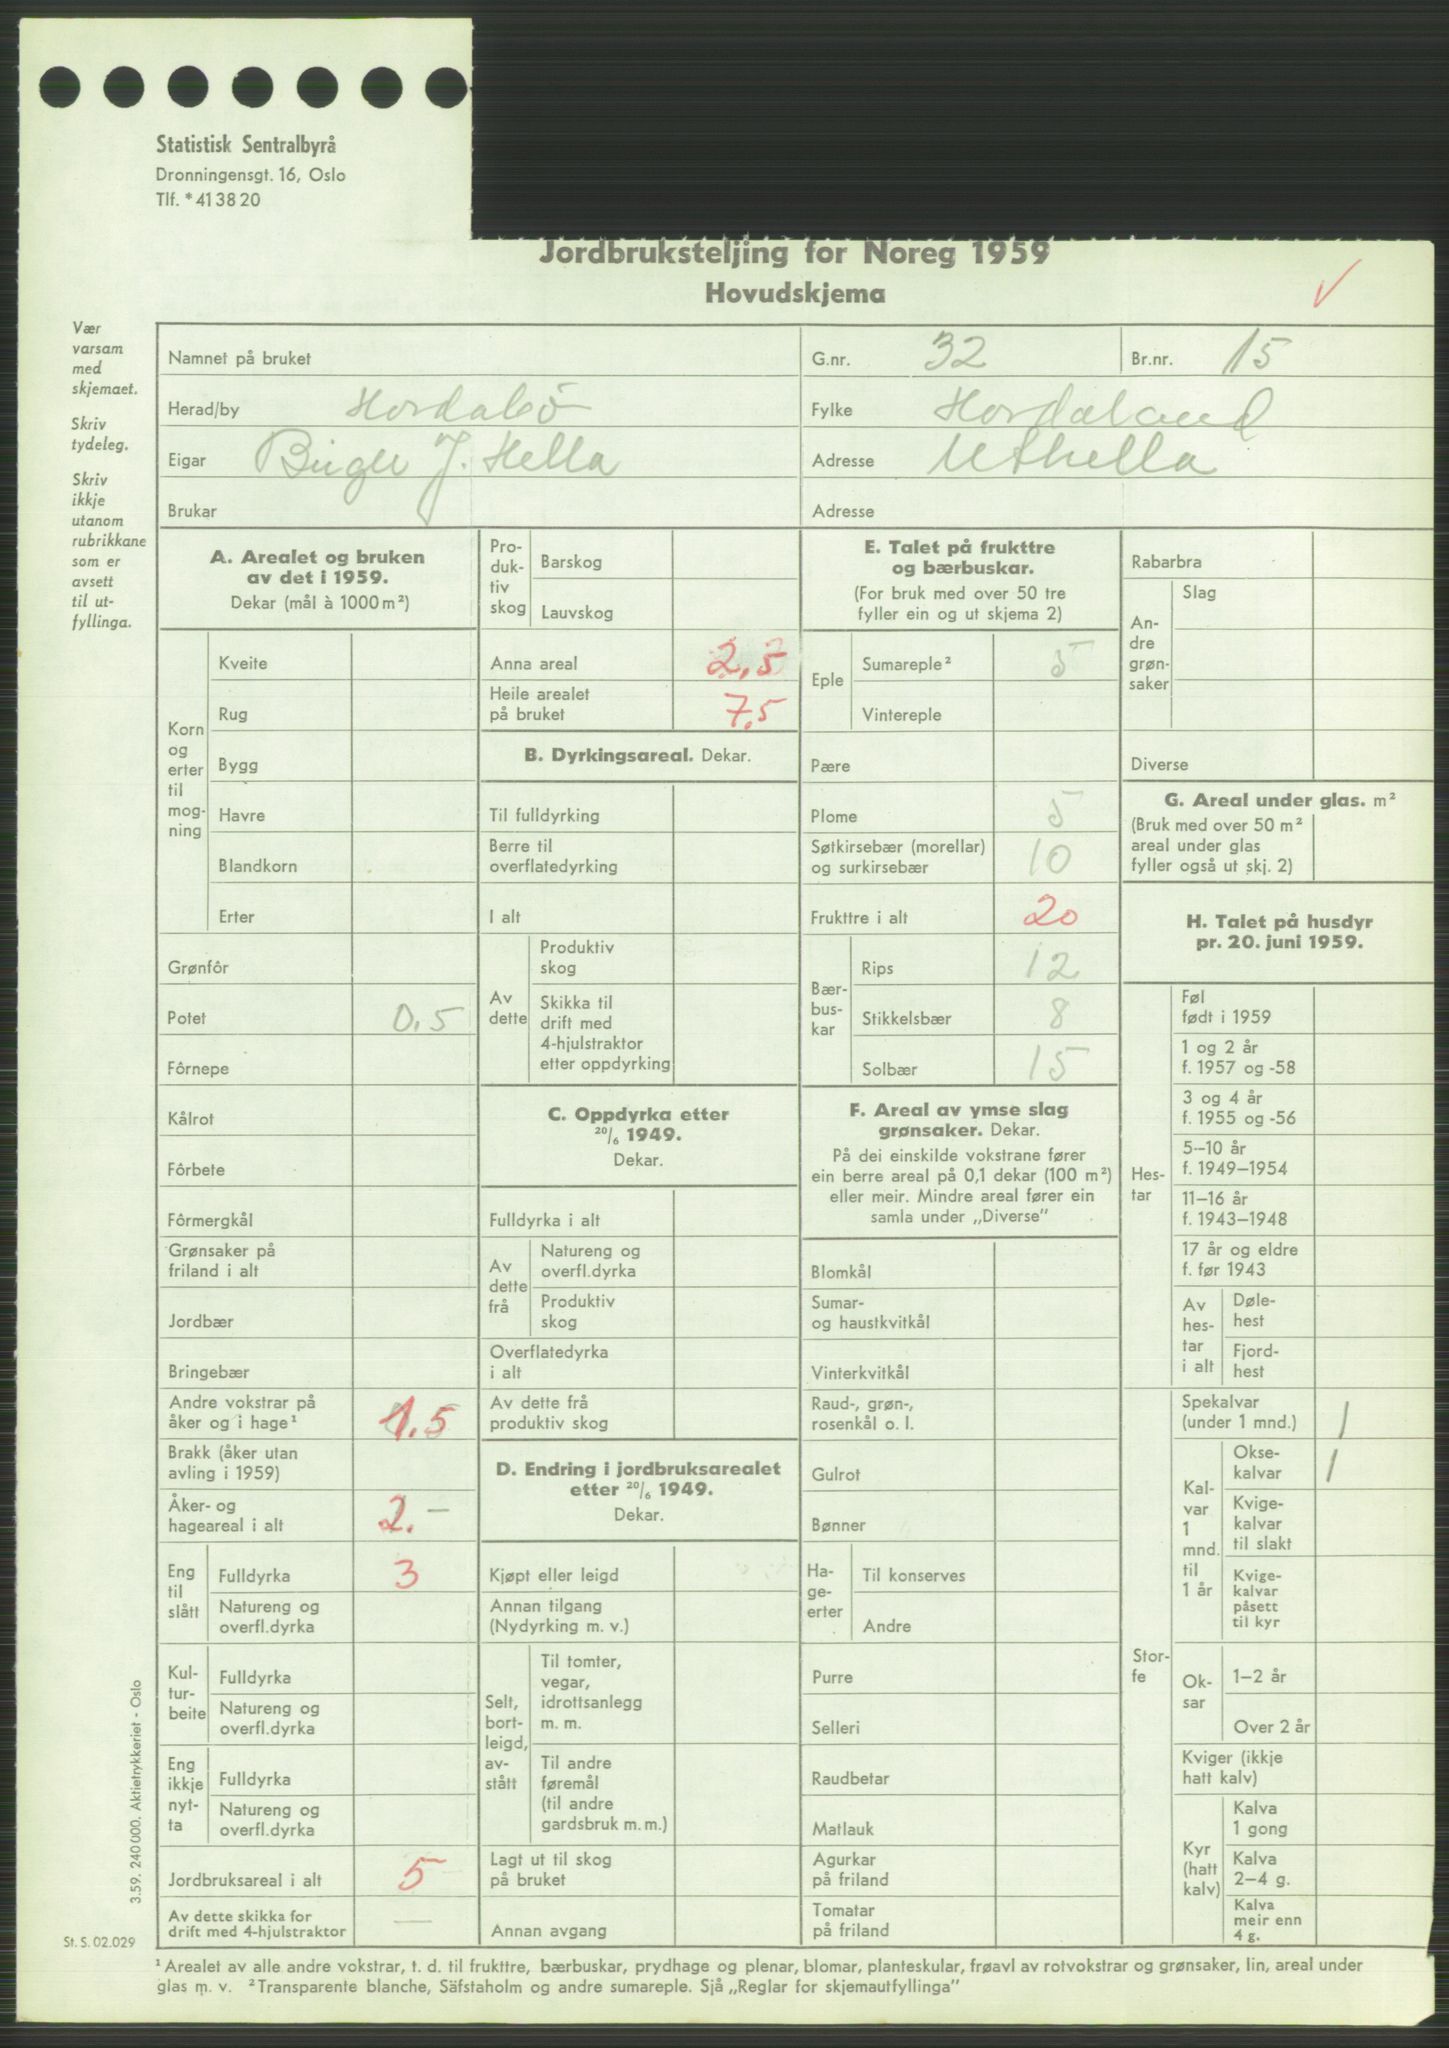 Statistisk Sentralbyrå
Dronningensgt. 16, Oslo
Tlf. *41 38 20
Jordbruksteljing for Noreg 1959
Hovudskjema
Vær
varsam
med
skjemaet.
Skriv
tydeleg.
Skriv
ikkje
utanom
rubrikkane
som er
avsett
til ut-
fyllinga.
Namnet på bruket
G.nr. 32
Br.nr. 15
Herad/by Hordabö
Fylke Hordaland
Eigar Birger J. Hella
Adresse Uthella
Brukar
Adresse
A. Arealet og bruken
av det i 1959.
Dekar (mål à 1000 m²)
Korn
og
erter
til
mog-
ning
Kveite
Rug
Bygg
Havre
Blandkorn
Erter
Grønfôr
Potet 0,5
Fôrnepe
Kålrot
Fôrbete
Fôrmergkål
Grønsaker på
friland i alt
Jordbær
Bringebær
Andre vokstrar på
åker og i hage¹ 1.5
Brakk (åker utan
avling i 1959)
Åker- og
hageareal i alt 2.–
Eng
til
slått
Fulldyrka 3
Natureng og
overfl.dyrka
Kul-
tur-
beite
Fulldyrka
Natureng og
overfl.dyrka
Eng
ikkje
nyt-
ta
Fulldyrka
Natureng og
overfl.dyrka
Jordbruksareal i alt 5
Av dette skikka for
drift med 4-hjulstraktor —
Pro-
duk-
tiv
skog
Barskog
Lauvskog
Anna areal 2,5
Heile arealet
på bruket 7,5
B. Dyrkingsareal. Dekar.
Til fulldyrking
Berre til
overflatedyrking
I alt
Av
dette
Produktiv
skog
Skikka til
drift med
4-hjulstraktor
etter oppdyrking
C. Oppdyrka etter
20/6 1949.
Dekar.
Fulldyrka i alt
Av
dette
frå
Natureng og
overfl.dyrka
Produktiv
skog
Overflatedyrka
i alt
Av dette frå
produktiv skog
D. Endring i jordbruksarealet
etter 20/6 1949.
Dekar.
Kjøpt eller leigd
Annan tilgang
(Nydyrking m. v.)
Selt,
bort-
leigd,
av-
stått
Til tomter,
vegar,
idrottsanlegg
m. m.
Til andre
føremål
(til andre
gardsbruk m. m.)
Lagt ut til skog
på bruket
Annan avgang
E. Talet på frukttre
og bærbuskar.
(For bruk med over 50 tre
fyller ein og ut skjema 2)
Eple
Sumareple² 5
Vintereple
Pære
Plome 5
Søtkirsebær (morellar)
og surkirsebær 10
Frukttre i alt 20
Bær-
bus-
kar
Rips 12
Stikkelsbær 8
Solbær 15
F. Areal av ymse slag
grønsaker. Dekar.
På dei einskilde vokstrane fører
ein berre areal på 0,1 dekar (100 m²)
eller meir. Mindre areal fører ein
samla under „Diverse”
Blomkål
Sumar-
og haustkvitkål
Vinterkvitkål
Raud-, grøn-,
rosenkål o. l.
Gulrot
Bønner
Ha-
ge-
erter
Til konserves
Andre
Purre
Selleri
Raudbetar
Matlauk
Agurkar
på friland
Tomatar
på friland
Rabarbra
An-
dre
grøn-
saker
Slag
Diverse
G. Areal under glas. m²
(Bruk med over 50 m²
areal under glas
fyller også ut skj. 2)
H. Talet på husdyr
pr. 20. juni 1959.
Hes-
tar
Føl
født i 1959
1 og 2 år
f. 1957 og -58
3 og 4 år
f. 1955 og -56
5–10 år
f. 1949–1954
11–16 år
f. 1943–1948
17 år og eldre
f. før 1943
Av
hes-
tar
i alt
Døle-
hest
Fjord-
hest
Stor-
fe
Spekalvar
(under 1 mnd.) 1
Kal-
var
1
mnd.
til
1 år
Okse-
kalvar 1
Kvige-
kalvar
til slakt
Kvige-
kalvar
påsett
til kyr
Ok-
sar
1–2 år
Over 2 år
Kviger (ikkje
hatt kalv)
Kyr
(hatt
kalv)
Kalva
1 gong
Kalva
2–4 g.
Kalva
meir enn
4 g.
3.59. 240 000. Aktietrykkeriet - Oslo
St. S. 02.029
¹ Arealet av alle andre vokstrar, t. d. til frukttre, bærbuskar, prydhage og plenar, blomar, planteskular, frøavl av rotvokstrar og grønsaker, lin, areal under
glas m. v. ² Transparente blanche, Säfstaholm og andre sumareple. Sjå „Reglar for skjemautfyllinga”